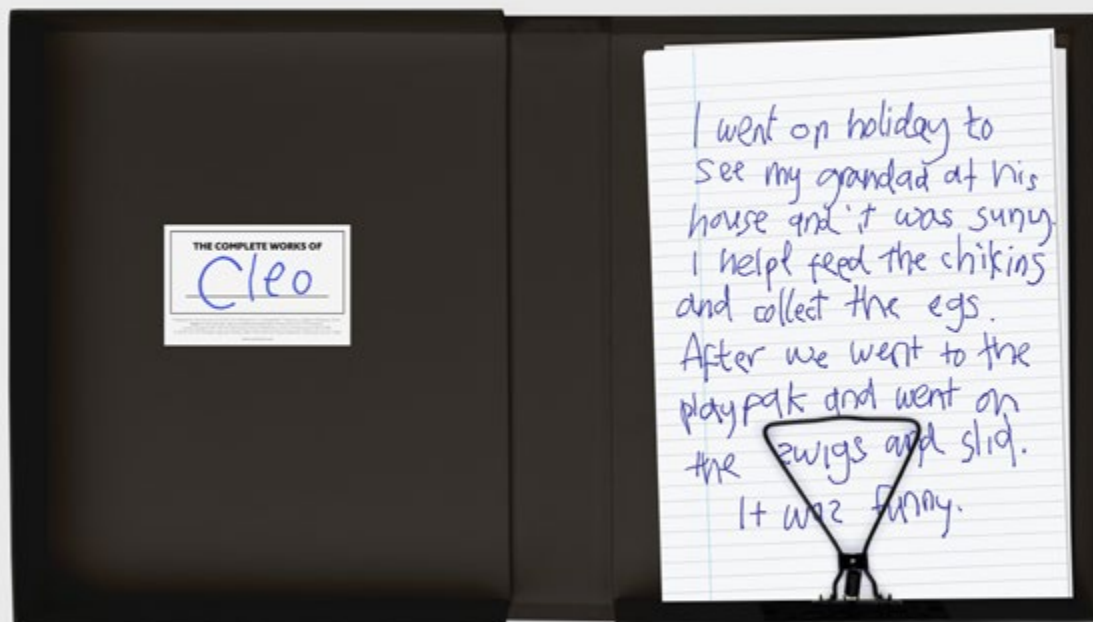 THE COMPLETE WORKS OF
Cleo
I went on holiday to
see my grandad at his
house and it was suny.
I helpt feed the chikins
and collect the egs.
After we went to the
playpak and went on
the swigs and slid.
It was funny.